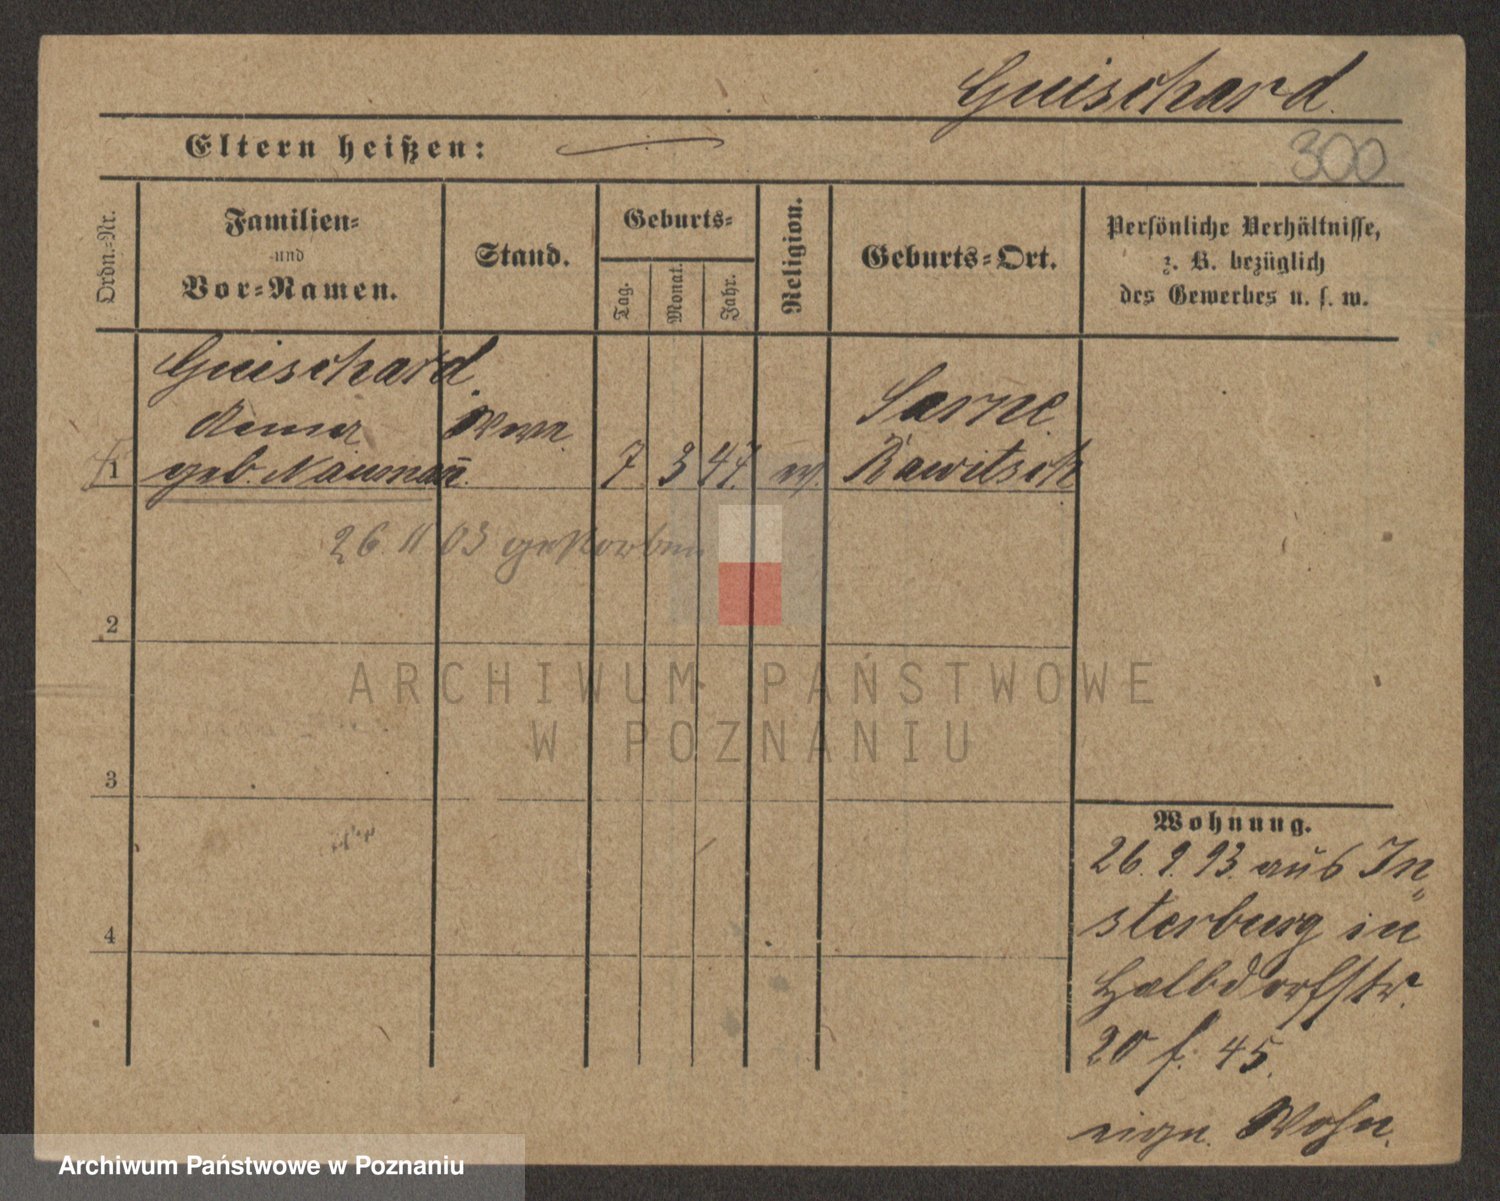 Guischard
Eltern heißen:
300
Ordn.-Nr.
Familien-
und
Vor-Namen.
Stand.
Geburts-
Tag.
Monat.
Jahr.
Religion.
Geburts-Ort.
Persönliche Verhältnisse,
z. B. bezüglich
des Gewerbes u. s. w.
Guischard
Anna Wwe Sarne
1 geb. Nauman̄ 7 3 47 ev. Rawitsch
26 11 03 gestorben
2
ARCHIWUM PAŃSTWOWE
W POZNANIU
3
4
Wohnung.
26. 9. 93. aus In-
sterburg in
Halbdorfstr.
20 f. 45.
eign. Wohn.
Archiwum Państwowe w Poznaniu